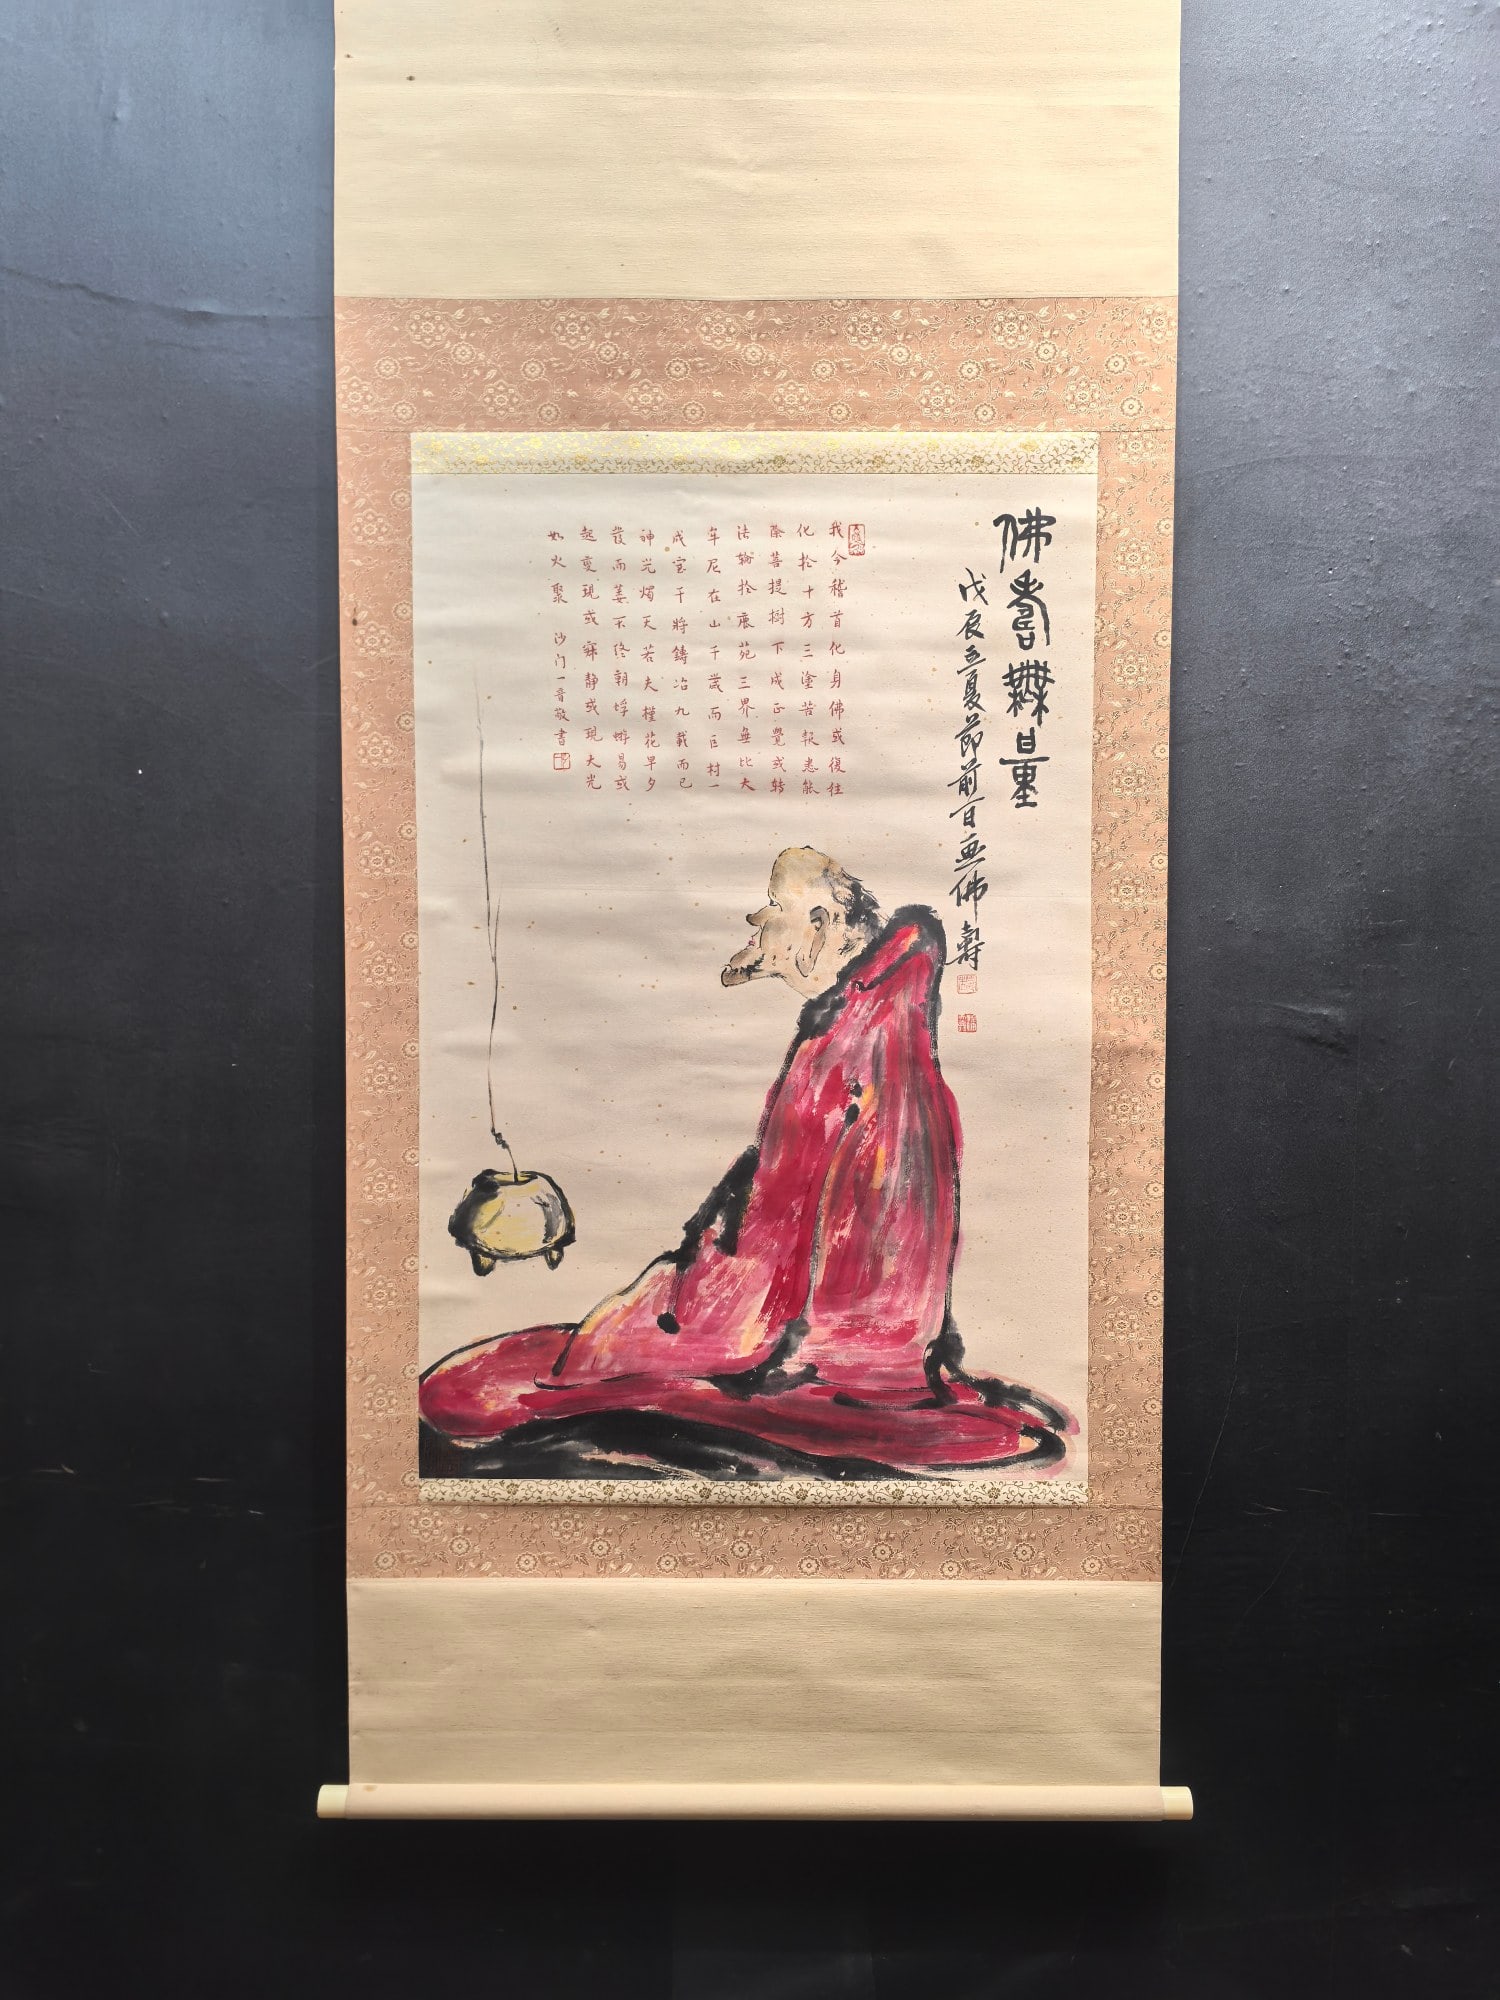 佛壽無量
戊辰五夏節前一日畫佛壽
我今稽首化身佛或復往
化於十方三塗苦報悉能
除菩提樹下成正覺或转
法輪於鹿苑三界無比大
牟尼在山千歲而巨村一
成室干將鑄冶九載而已
神光燭天若夫槿花早夕
發而萎不终朝蜉蝣易或
起变現或寐静或現大光
如火聚 沙门一音敬書